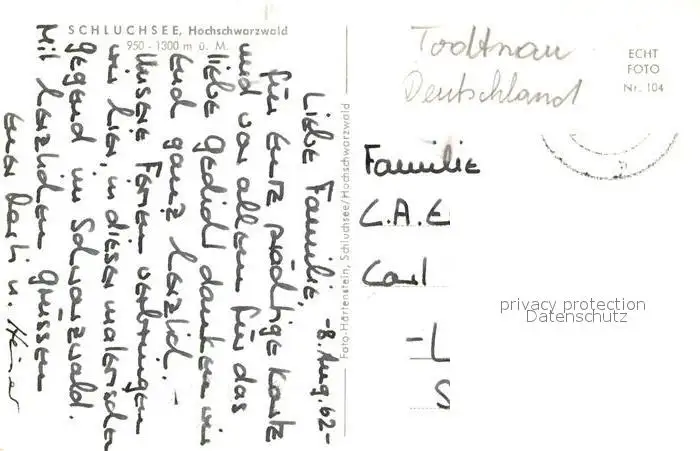 SCHLUCHSEE, Hochschwarzwald
950 - 1300 m ü. M.
-8. Aug. 62-
Liebe Familie,
für Eure prächtige Karte
und vor allem für das
liebe Gedicht danken wir
Euch ganz herzlich. -
Unsere Ferien verbringen
wir hier in dieser malerischen
Gegend im Schwarzwald.
Mit herzlichen Grüssen
Eure u. Heiner
Foto-Hartenstein, Schluchsee/Hochschwarzwald
Todtnau
Deutschland
ECHT
FOTO
Nr. 104
Familie
C.A.E
Carl
-L
S
privacy protection
Datenschutz